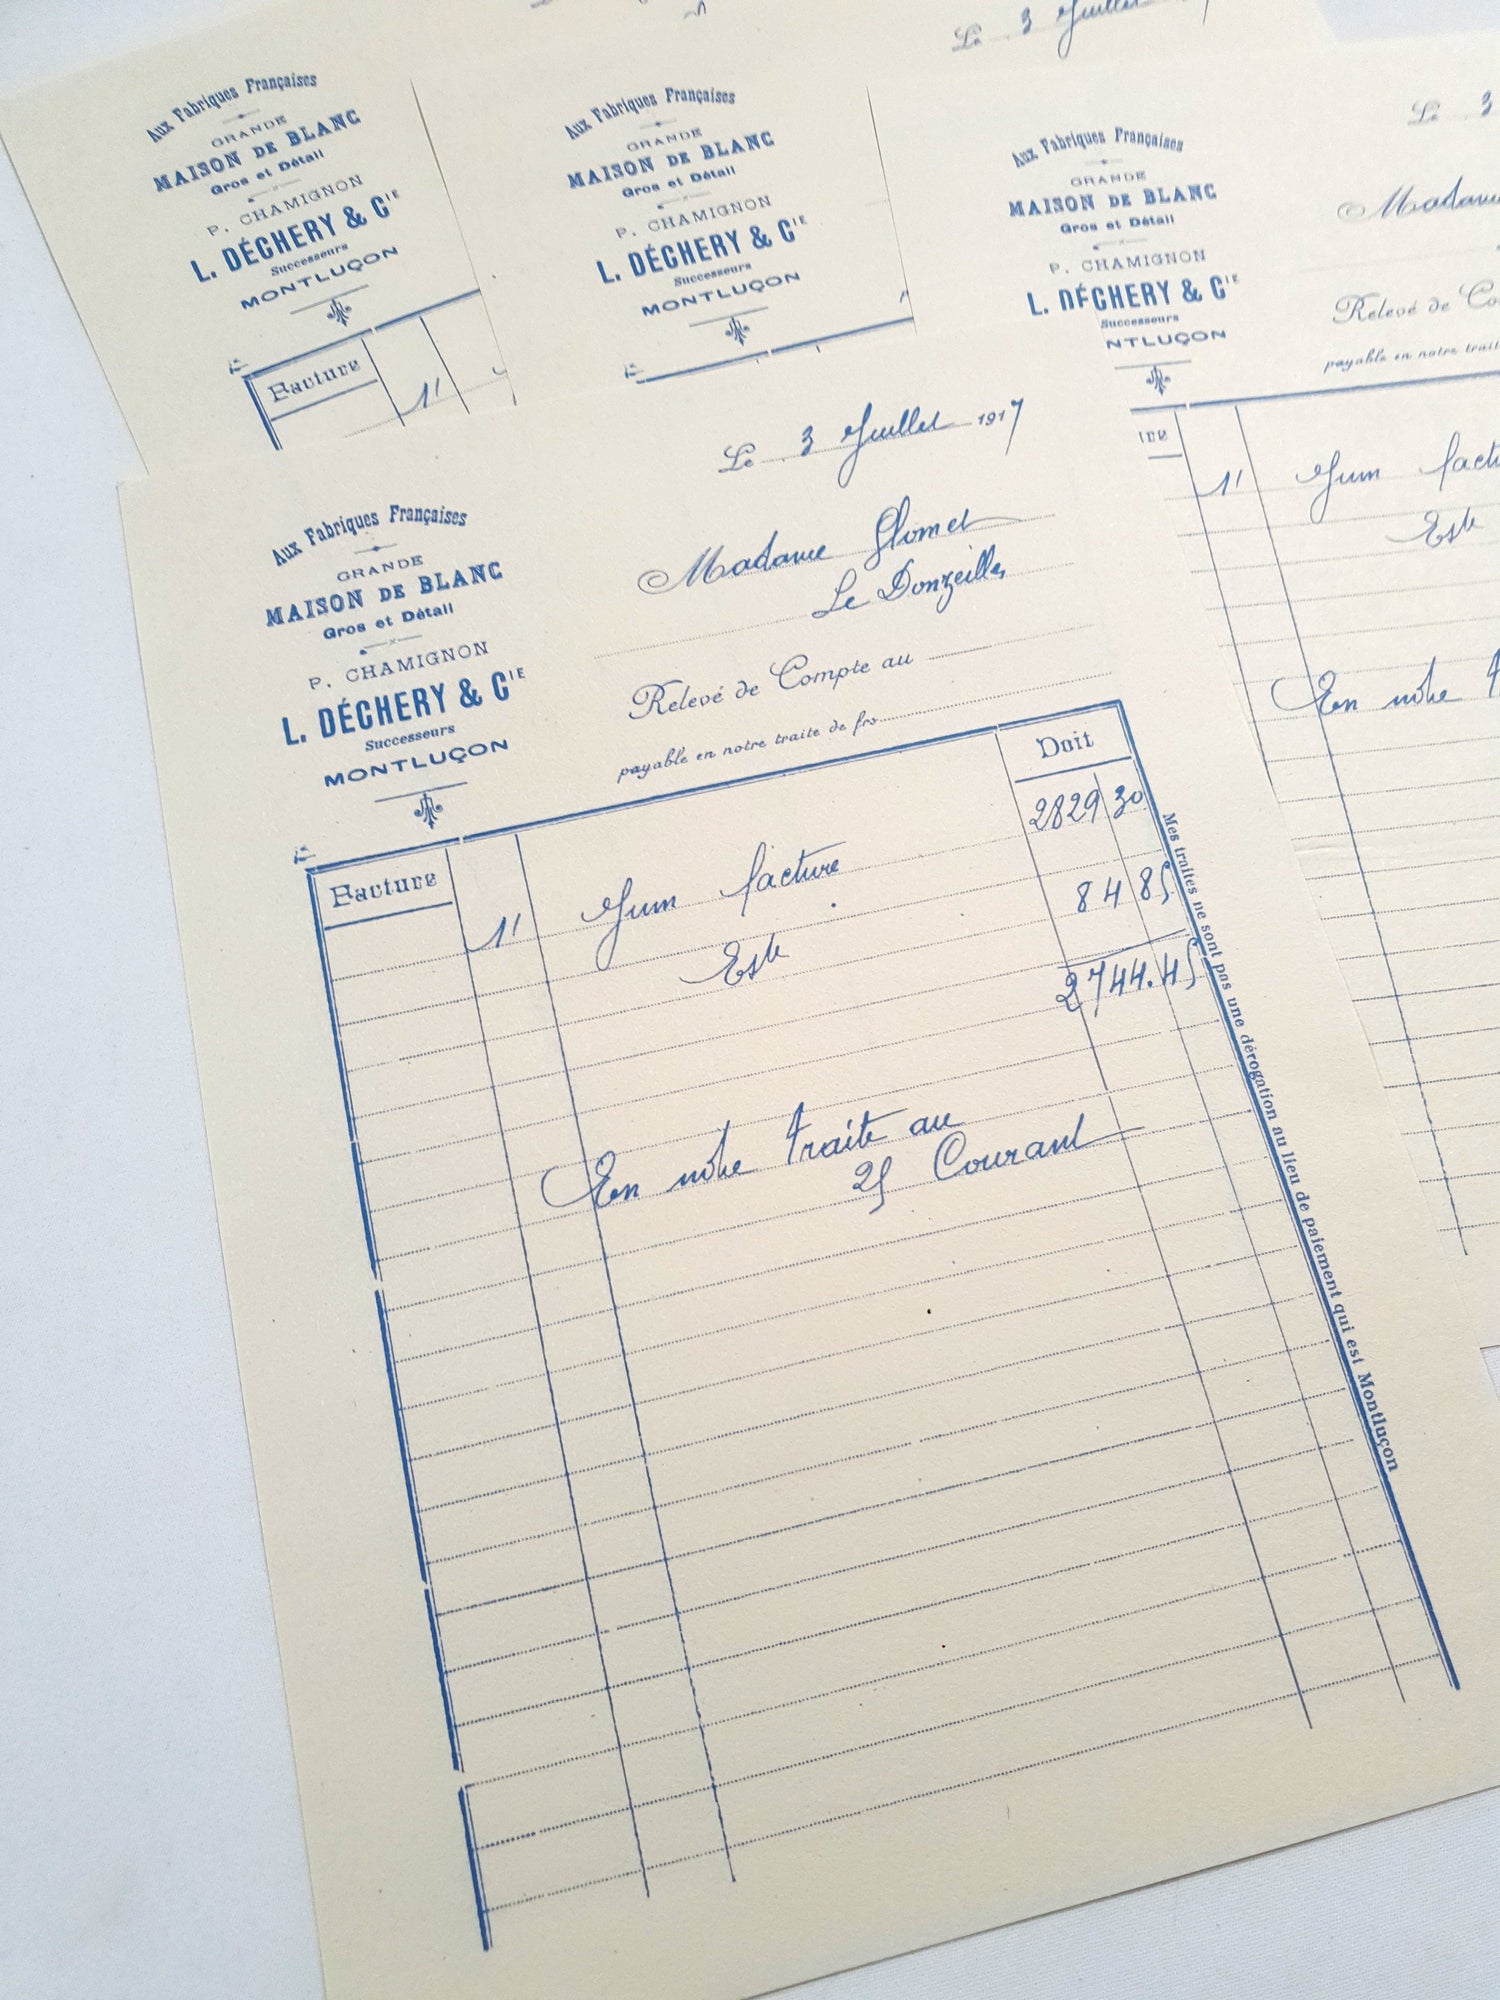 Le 3 Juillet
Aux Fabriques Françaises
GRANDE
MAISON DE BLANC
Gros et Détail
P. CHAMIGNON
L. DÉCHERY & Cie
Successeurs
MONTLUÇON
Facture
1'
Aux Fabriques Françaises
GRANDE
MAISON DE BLANC
Gros et Détail
P. CHAMIGNON
L. DÉCHERY & Cie
Successeurs
MONTLUÇON
Le 3
Aux Fabriques Françaises
GRANDE
MAISON DE BLANC
Gros et Détail
P. CHAMIGNON
L. DÉCHERY & Cie
Successeurs
NTLUÇON
Madame
Relevé de Co
payable en notre trait
1' Juin factu
Este
En notre
Le 3 Juillet 1917
Aux Fabriques Françaises
GRANDE
MAISON DE BLANC
Gros et Détail
P. CHAMIGNON
L. DÉCHERY & Cie
Successeurs
MONTLUÇON
Madame Glomet
Le Donzeille
Relevé de Compte au
payable en notre traite de frs
Facture Doit
1' Juin facture 2829 30
Este 84 85
2744.45
En notre traite au
25 Courant
Mes traites ne sont pas une dérogation au lieu de paiement qui est Montluçon